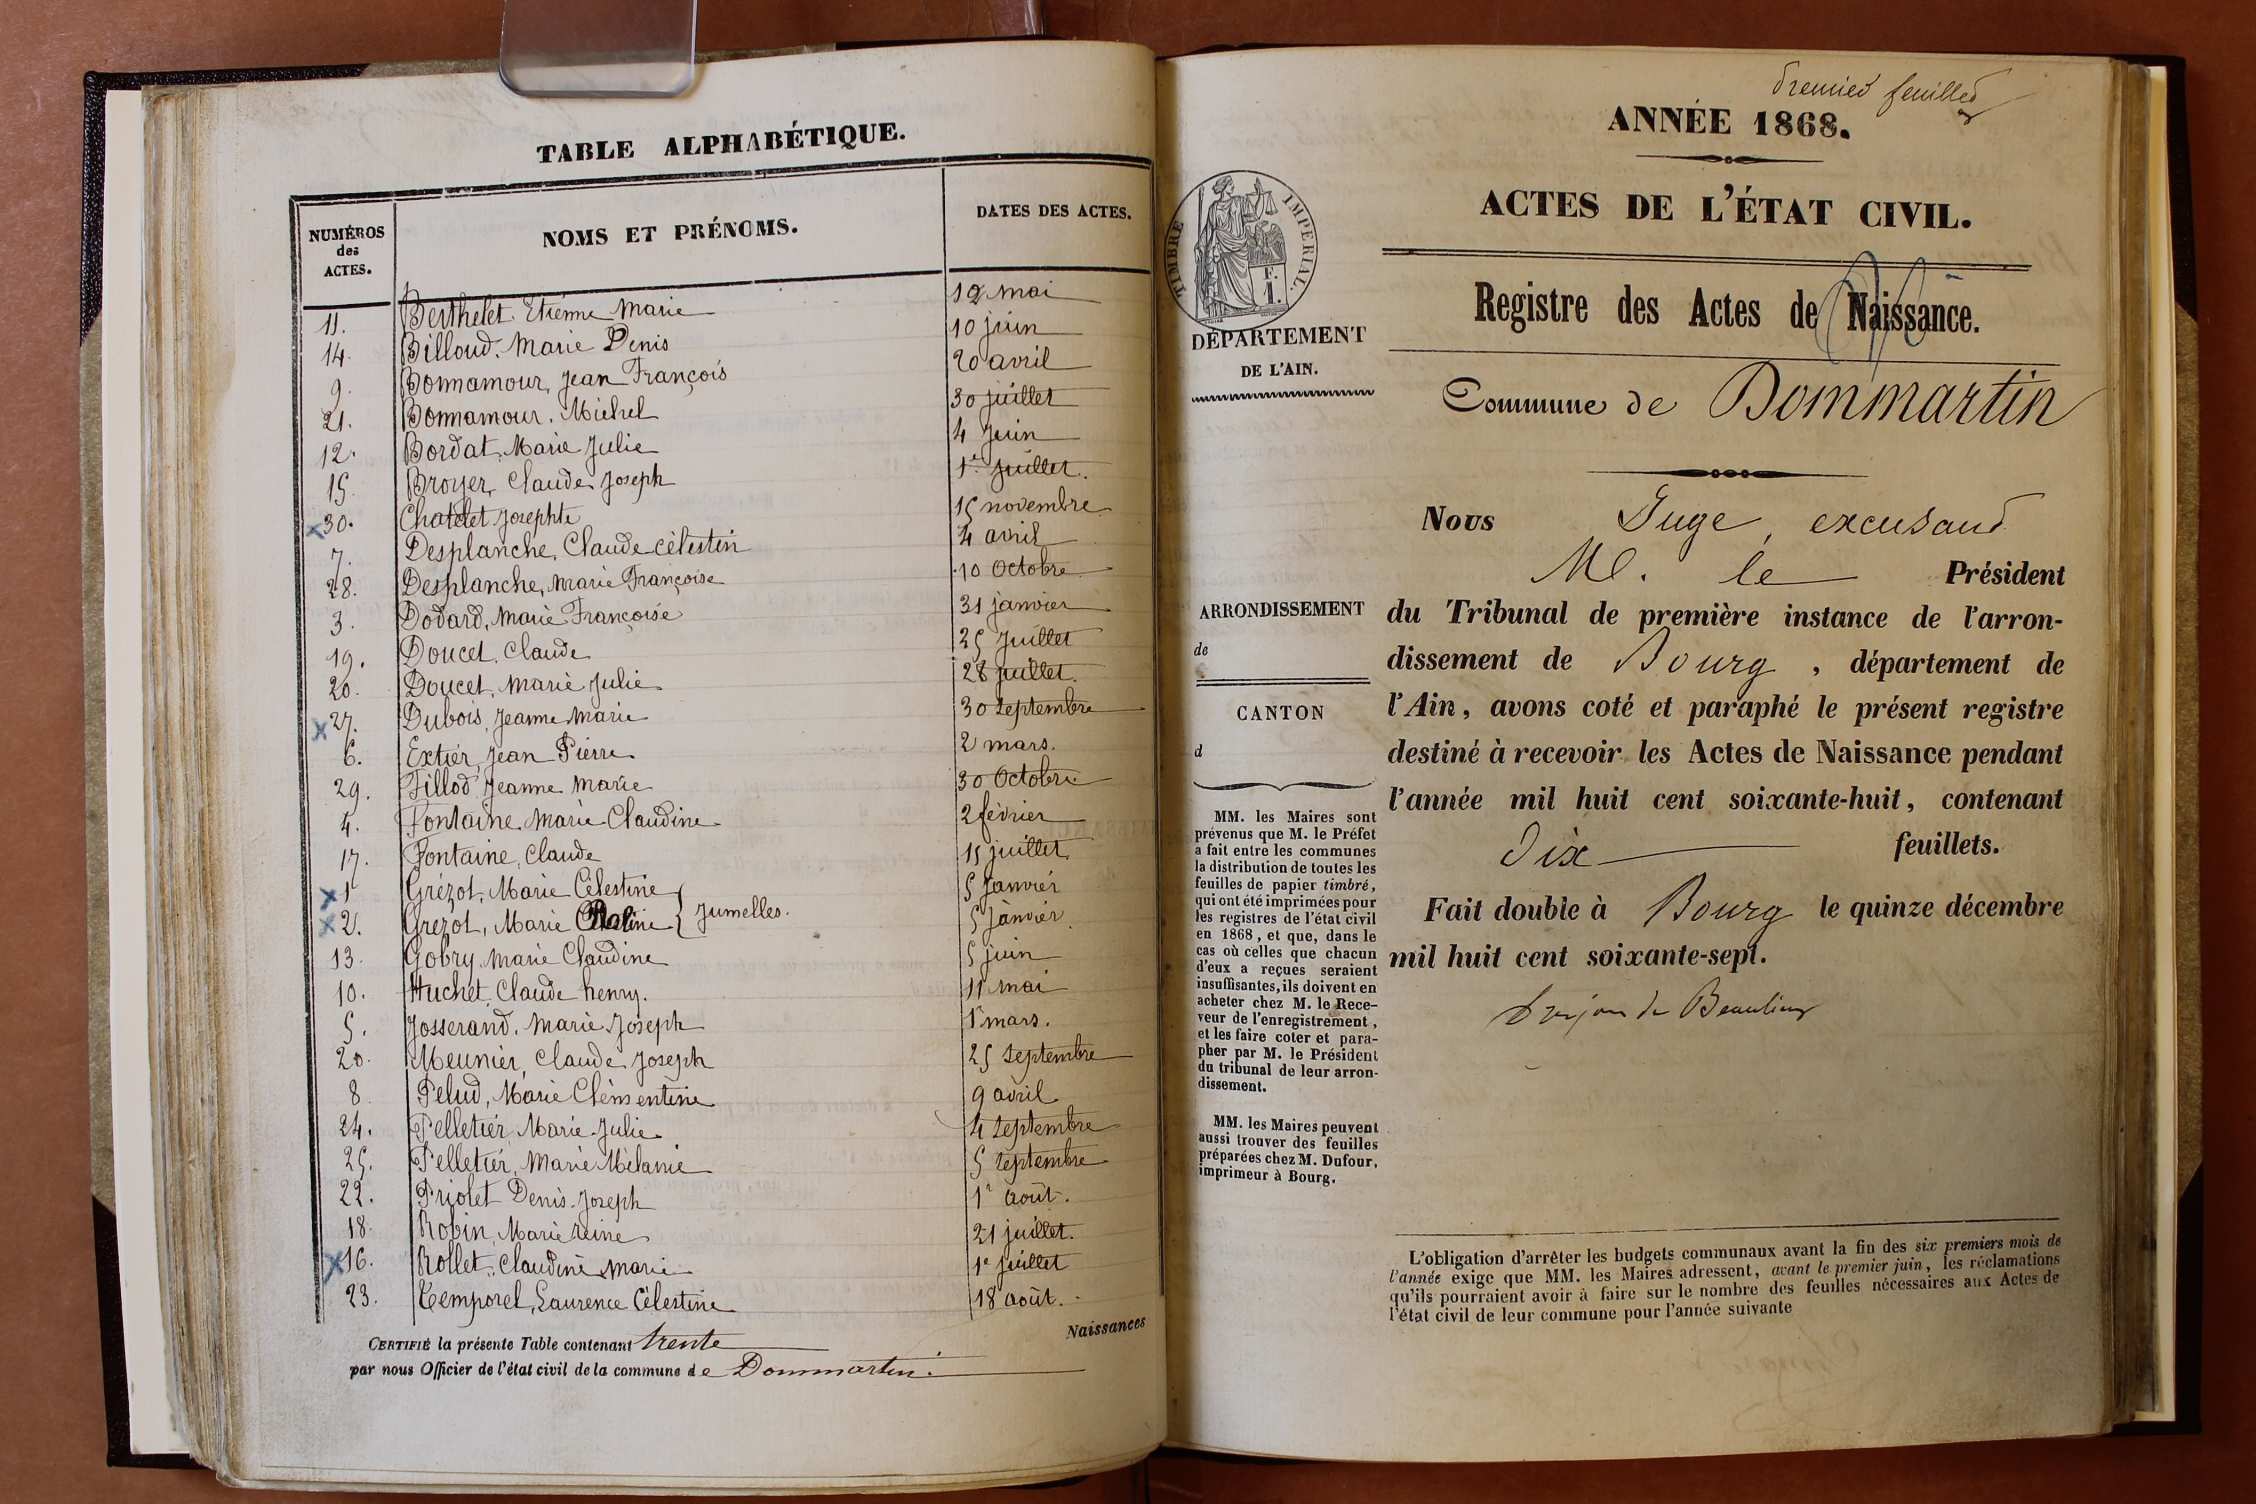 TABLE ALPHABÉTIQUE.
NUMÉROS des ACTES. NOMS ET PRÉNOMS. DATES DES ACTES.
11. Berthelet Etienne Marie 12 mai
14. Billoud. Marie Denis 10 juin
9. Bonnamour, Jean François 20 avril
21. Bonnamour. Michel 30 juillet
12. Bordat, Marie Julie 4 Juin
15. Broyer, Claude Joseph 1er Juillet.
x 30. Chatelet Josephte 15 novembre
7. Desplanche, Claude célestin 4 avril
28. Desplanche, Marie Françoise 10 Octobre
3. Dodard, Marie Françoise 31 janvier
19. Doucet. Claude 25 Juillet
20. Doucet, Marie Julie 28 juillet.
x 27. Dubois, Jeanne Marie 30 septembre
6. Extier, Jean Pierre 2 mars.
29. Fillod Jeanne Marie 30 Octobre
4. Fontaine, Marie Claudine 2 février
17. Fontaine, Claude 15 juillet
x 1 Grézot, Marie Célestine 5 Janvier
x 2. Grezot, Marie { Jumelles. 5 janvier
13. Gobry, Marie Claudine 5 juin
10. Huchet, Claude henry. 11 mai
5. Josserand, Marie Joseph 1er mars.
20. Meunier, Claude Joseph 25 septembre
8. Pelud, Marie Clémentine 9 avril
24. Pelletier, Marie Julie 4 septembre
25. Pelletier, Marie Mélanie 5 septembre
22. Priolet Denis Joseph 1er août.
18. Robin, Marie reine 21 juillet.
x 16. Rollet, Claudine Marie 1er juillet
23. Temporel, Laurence Célestine 18 août.
CERTIFIÉ la présente Table contenant trente Naissances
par nous Officier de l'état civil de la commune de Dommartin.
Premier feuillet
ANNÉE 1868.
ACTES DE L'ÉTAT CIVIL.
TIMBRE IMPERIAL.
F. I.
Registre des Actes de Naissance.
DÉPARTEMENT
DE L'AIN.
Commune de Dommartin
Nous Juge, excusant
M. le Président
du Tribunal de première instance de l'arron-
dissement de Bourg, département de
l'Ain, avons coté et paraphé le présent registre
destiné à recevoir les Actes de Naissance pendant
l'année mil huit cent soixante-huit, contenant
dix feuillets.
Fait double à Bourg le quinze décembre
mil huit cent soixante-sept.
de Beaulieu
ARRONDISSEMENT
de
CANTON
d
MM. les Maires sont
prévenus que M. le Préfet
a fait entre les communes
la distribution de toutes les
feuilles de papier timbré,
qui ont été imprimées pour
les registres de l'état civil
en 1868, et que, dans le
cas où celles que chacun
d'eux a reçues seraient
insuffisantes, ils doivent en
acheter chez M. le Rece-
veur de l'enregistrement,
et les faire coter et para-
pher par M. le Président
du tribunal de leur arron-
dissement.
MM. les Maires peuvent
aussi trouver des feuilles
préparées chez M. Dufour,
imprimeur à Bourg.
L'obligation d'arrêter les budgets communaux avant la fin des six premiers mois de
l'année exige que MM. les Maires adressent, avant le premier juin, les réclamations
qu'ils pourraient avoir à faire sur le nombre des feuilles nécessaires aux Actes de
l'état civil de leur commune pour l'année suivante